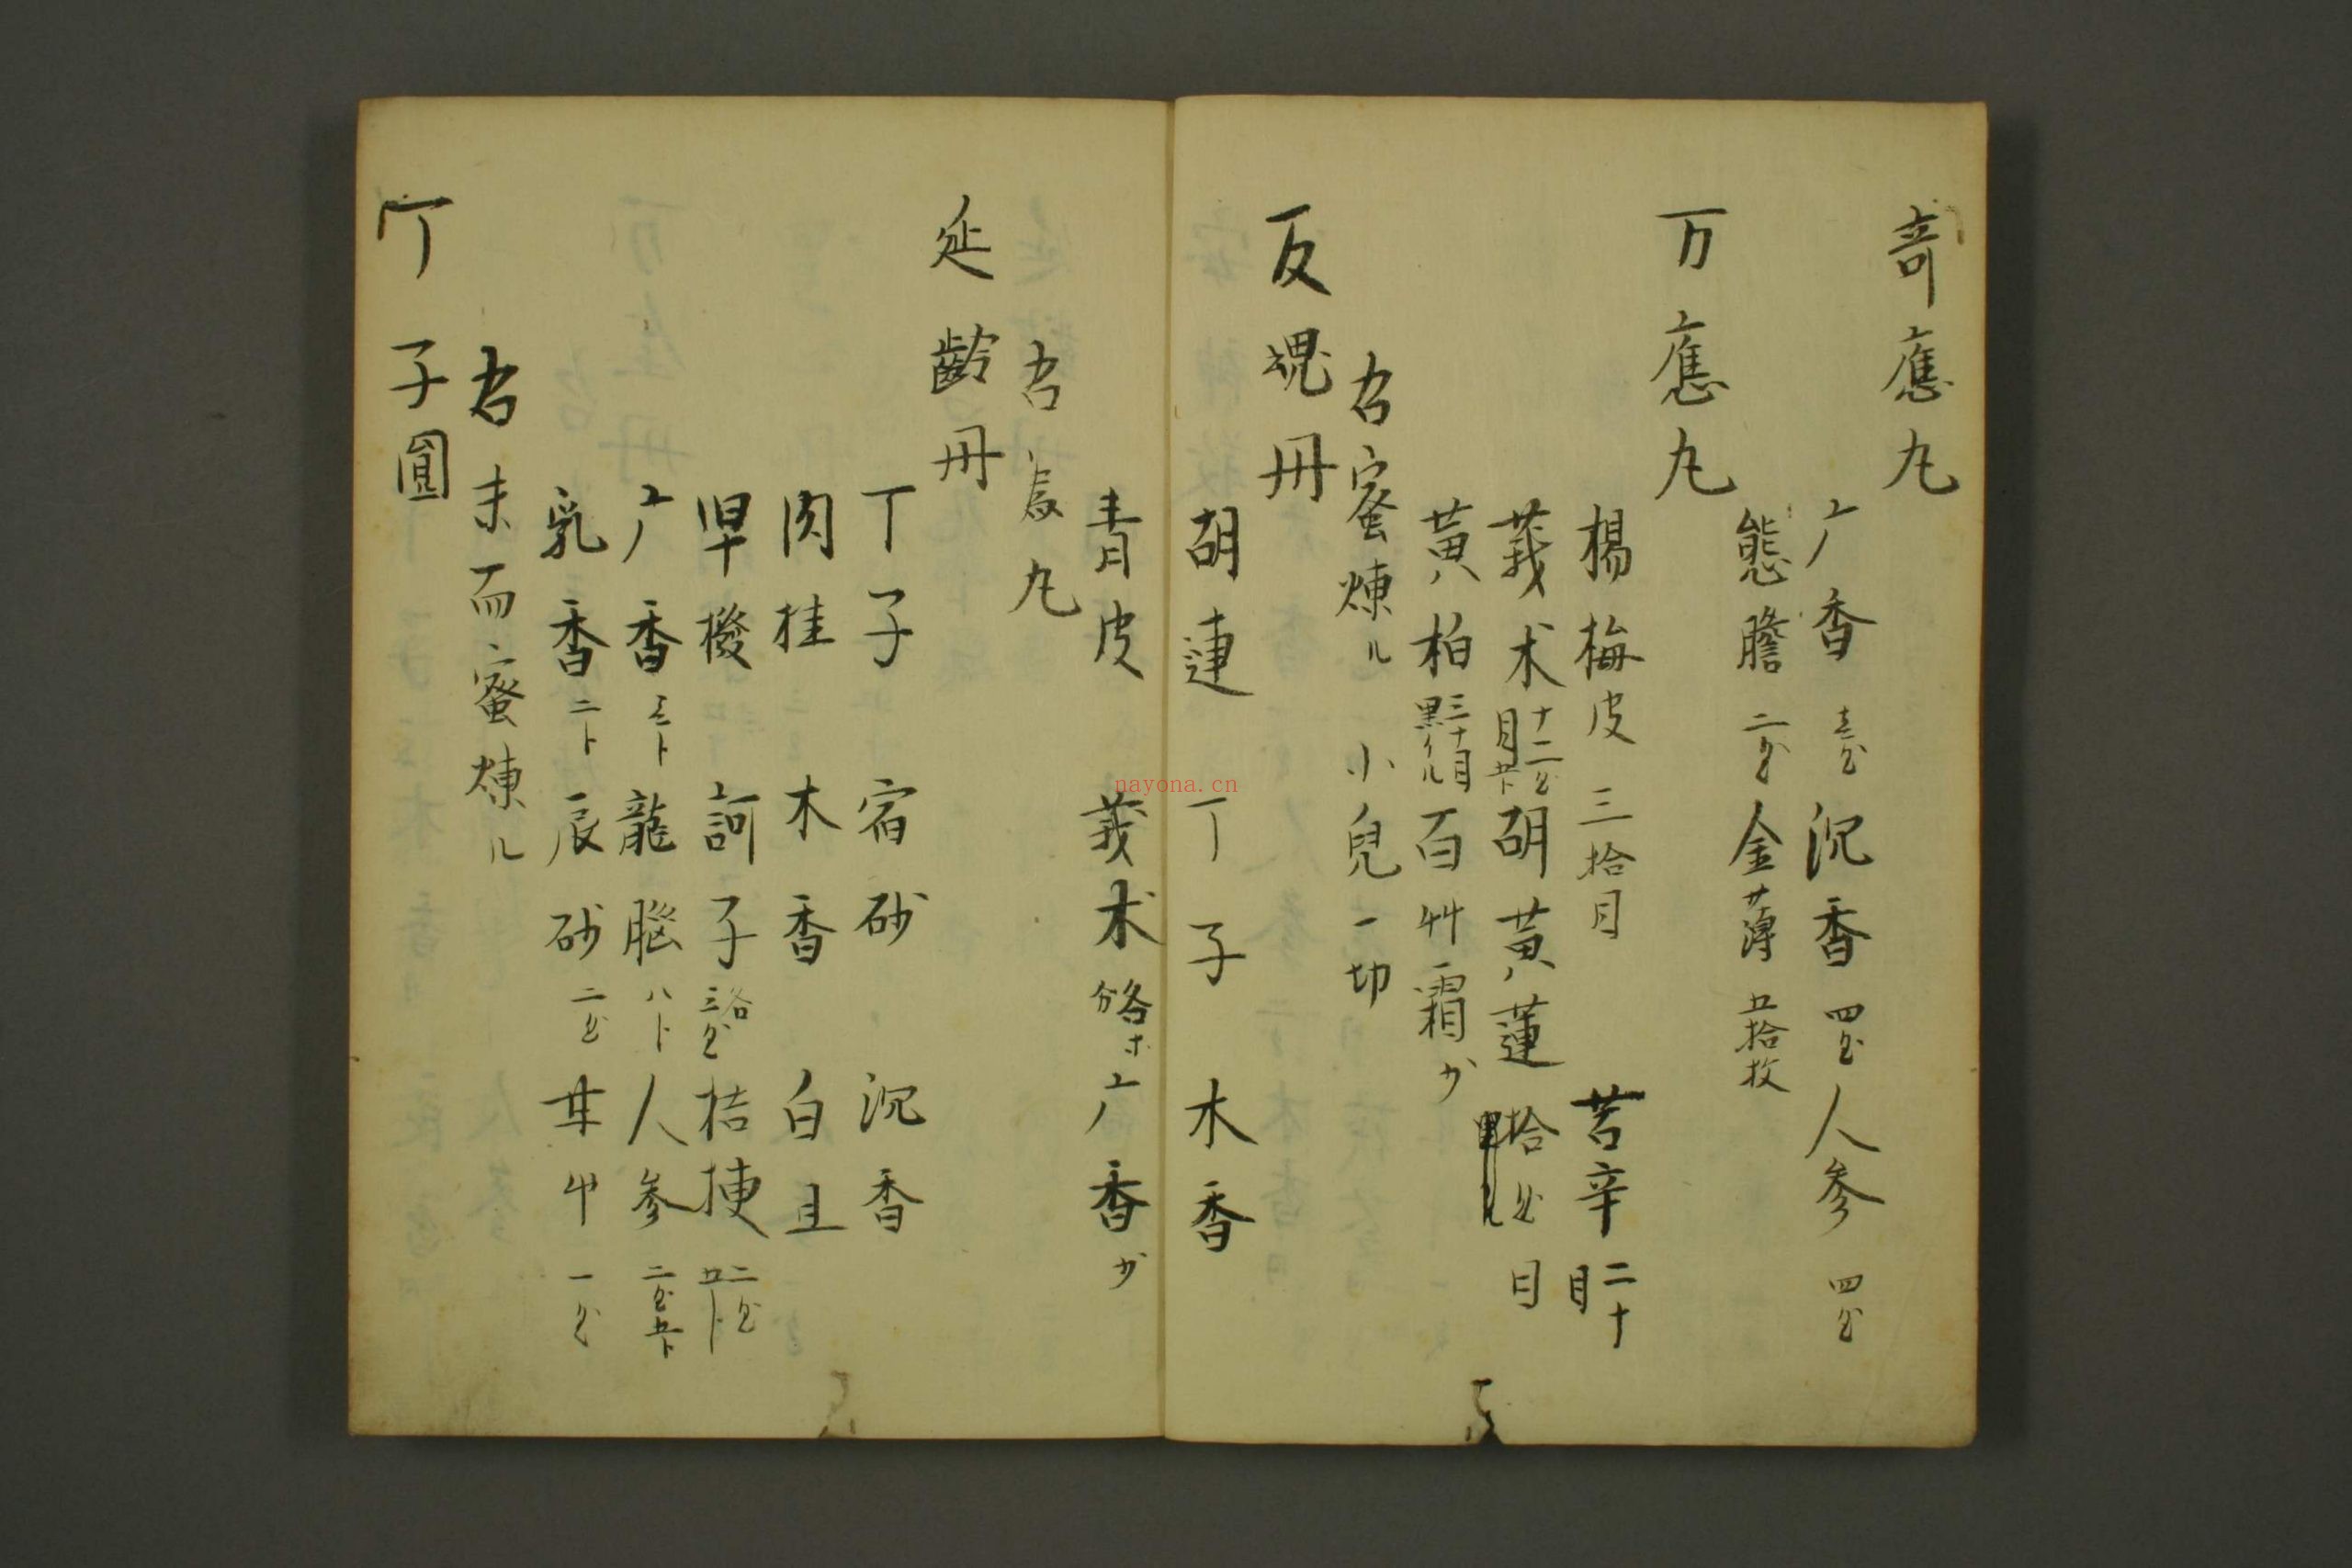 奇應丸
广香 沉香 四匁 人参 四匁
熊膽 二匁 金薄 五拾枚
万應丸
楊梅皮 三拾目 苦辛 二十目
莪术 十二匁 胡黄蓮 拾匁 目
黄柏 三十目 黒クル 百艸霜 少
右蜜煉ル 小兒一切
反魂丹
胡連 丁子 木香
青皮 莪术 各ホ分 广香 少
右為丸
延齡丹
丁子 宿砂 沉香
肉桂 木香 白且
甲撥 訶子 各三匁 桔挭 二匁五卜
广香 三卜 龍腦 八卜 人参 二匁五卜
乳香 二卜 辰砂 二匁 甘艸 一匁
右末而蜜煉ル
丁子圓
nayona.cn